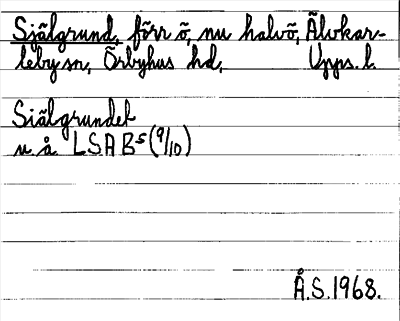 Själgrund, förr ö, nu halvö, Älvkar-
leby sn, Örbyhus hd, Upps. l.
Själgrundet
u. å. LSA B5 (9/10)
Å.S. 1968.